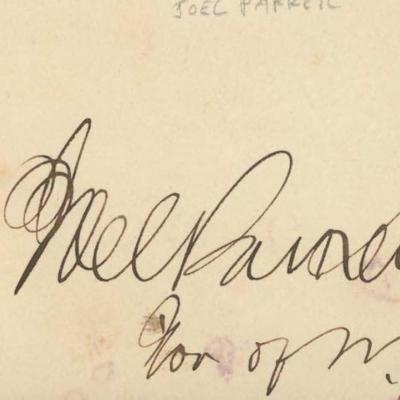 JOEL PARKER
Joel Parker
Gov of N.